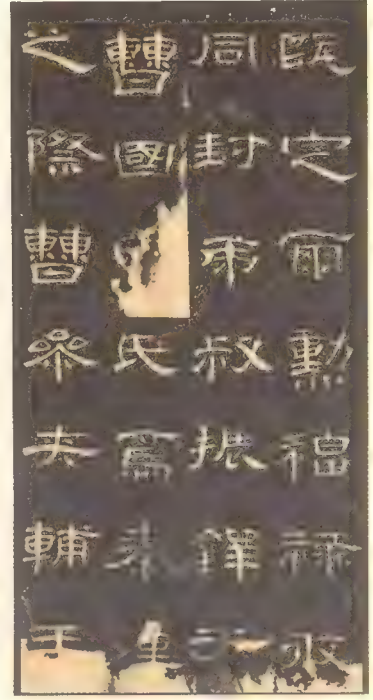 既定爾勳福祿攸
同封弟叔振鐸
曹國氏焉秦
之際曹參夾輔王